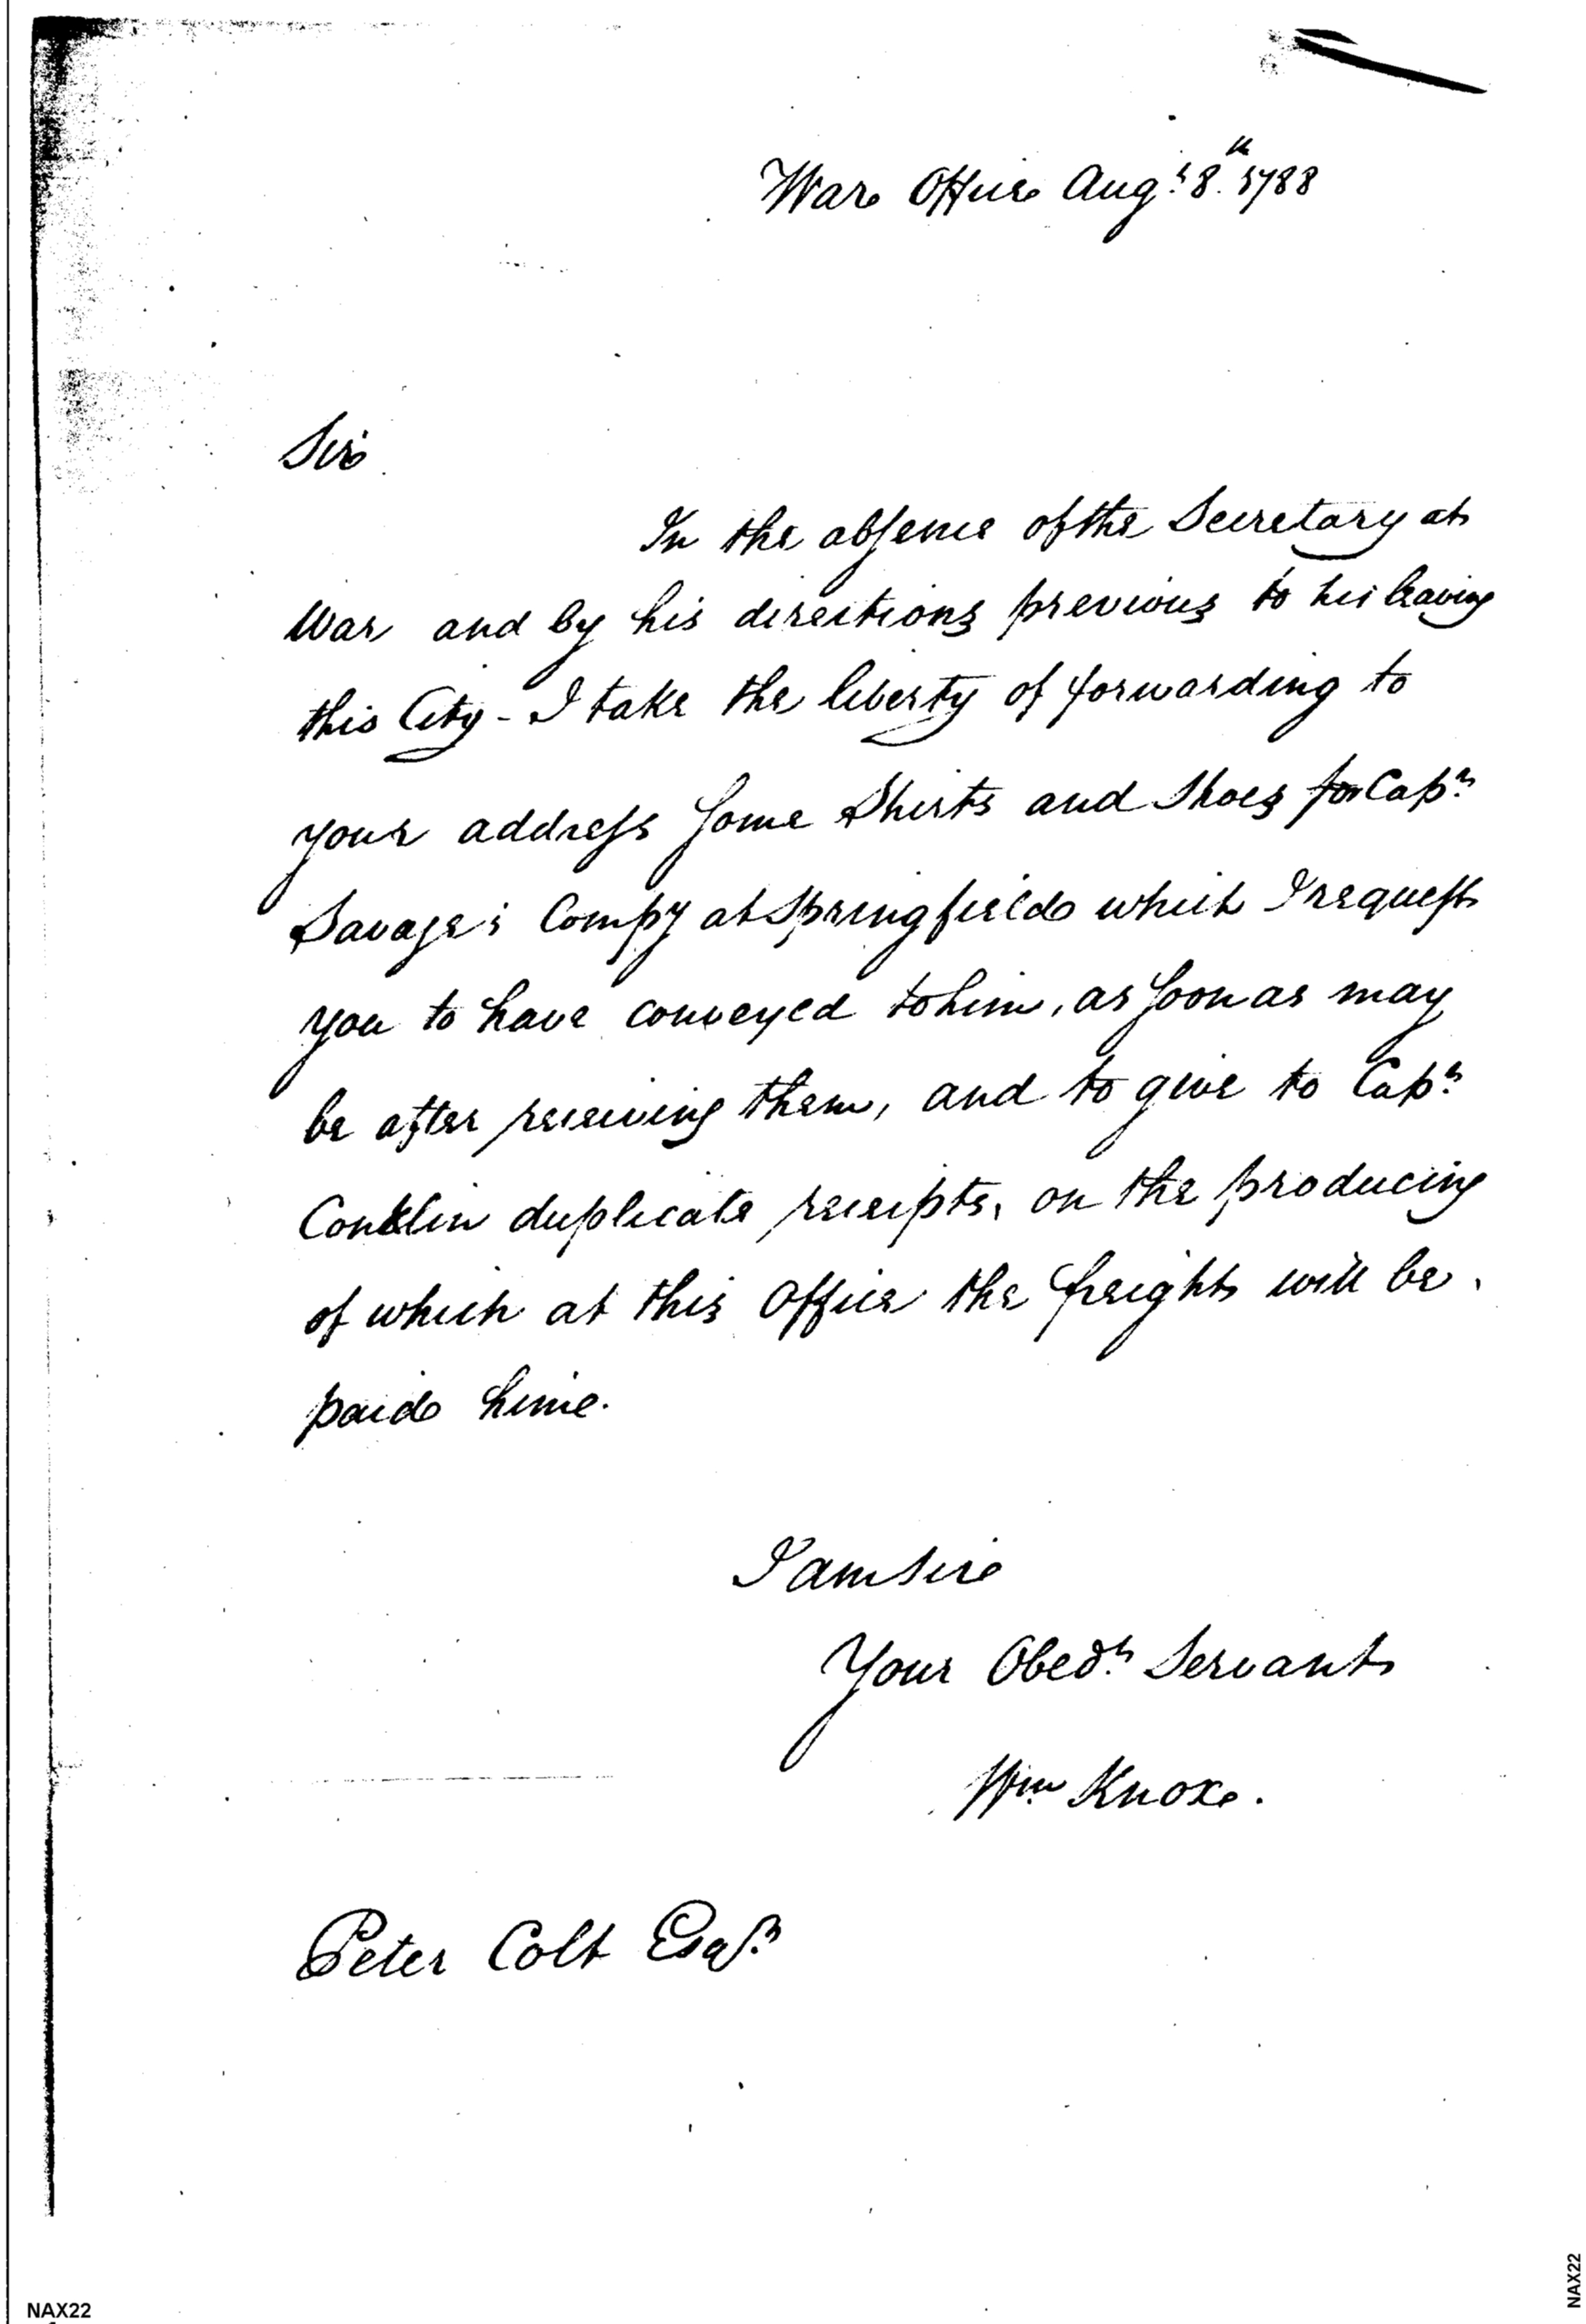 War Office Augt. 8th. 1788
Sir
In the absence of the Secretary at
War and by his directions previous to his leaving
this City - I take the liberty of forwarding to
your address some Shirts and Shoes for Capt.
Savage's Compy at Springfield which I request
you to have conveyed to him, as soon as may
be after receiving them, and to give to Capt.
Conklin duplicate receipts, on the producing
of which at this Office the freight will be
paid him.
I am Sir
Your Obedt. Servant
Wm Knox.
Peter Colt Esqr.
NAX22
NAX22